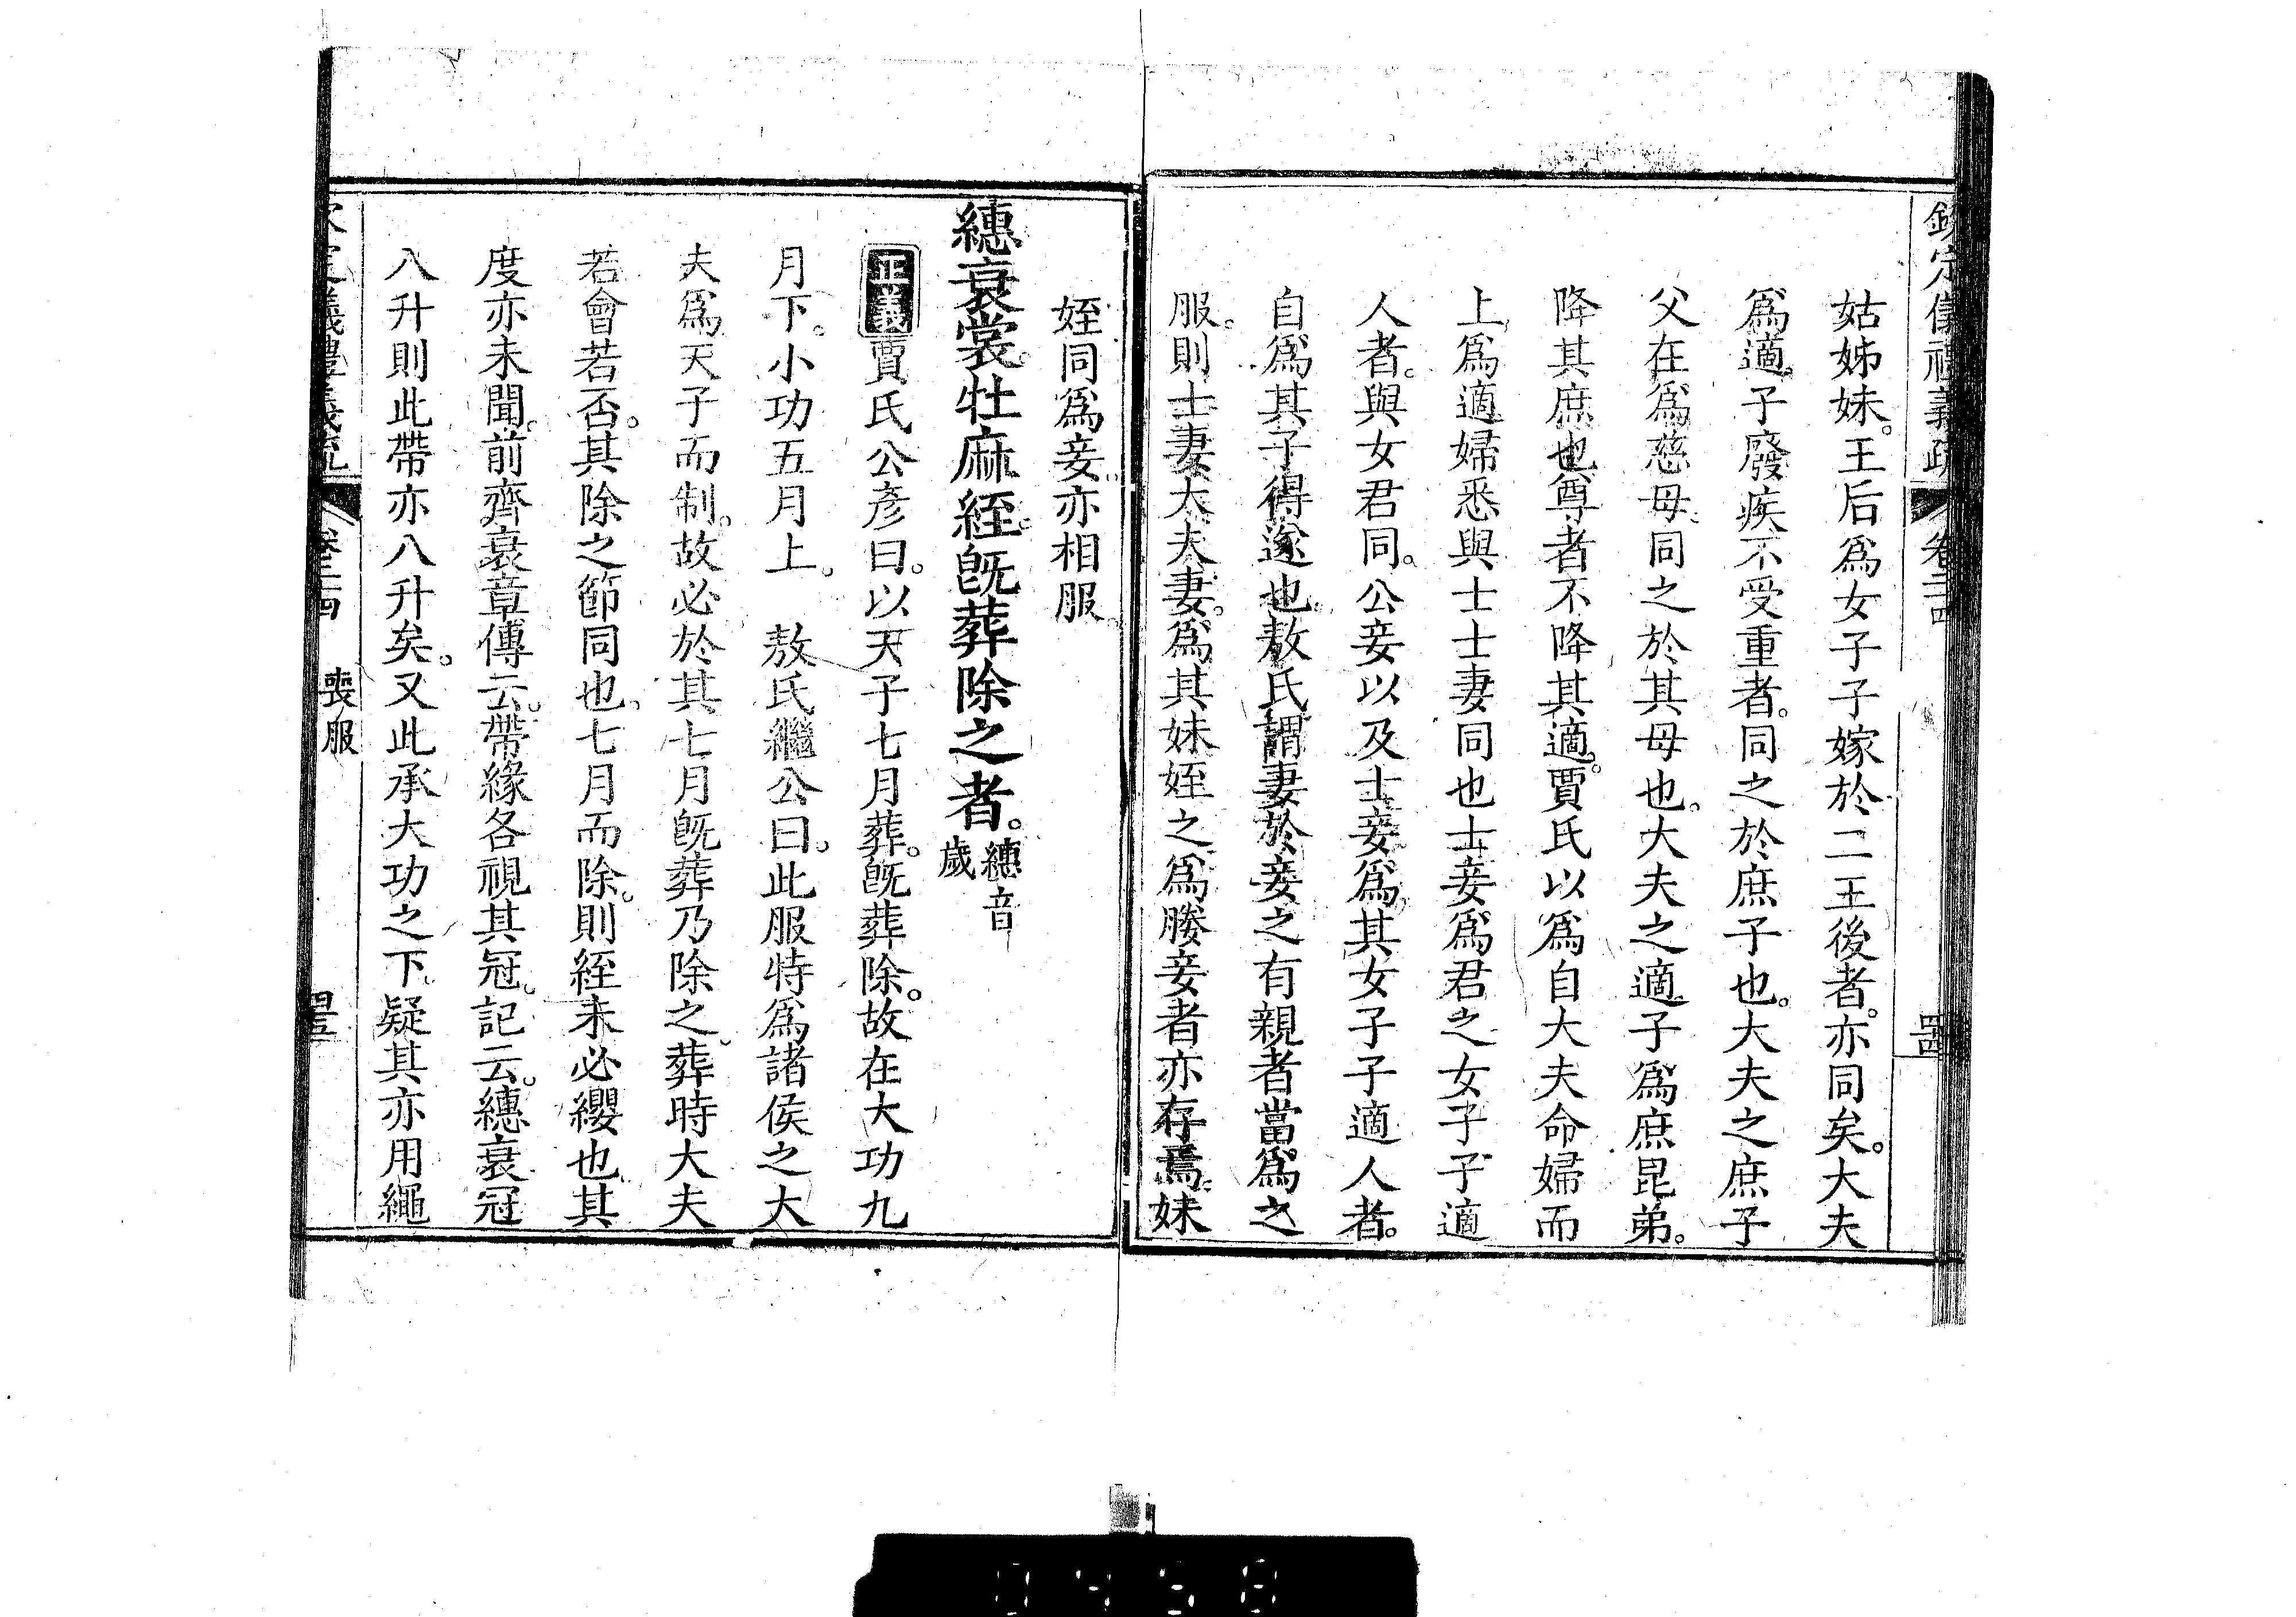 欽定儀禮義疏 卷二十四 四十四
姑姊妹。王后爲女子子嫁於二王後者。亦同矣。大夫
爲適子廢疾不受重者。同之於庶子也。大夫之庶子
父在爲慈母。同之於其母也。大夫之適子爲庶昆弟。
降其庶也尊者不降其適。賈氏以爲自大夫命婦而
上爲適婦悉與士士妻同也士妾爲君之女子子適
人者。與女君同。公妾以及士妾爲其女子子適人者。
自爲其子得遂也。敖氏謂妻於妾之有親者當爲之
服。則士妻大夫妻。爲其妹姪之爲媵妾者亦存焉。妹
姪同爲妾亦相服。
繐衰裳牡麻絰旣葬除之者。繐音
歲
正義賈氏公彥曰。以天子七月葬。旣葬除。故在大功九
月下。小功五月上。 敖氏繼公曰。此服特爲諸侯之大
夫爲天子而制。故必於其七月旣葬乃除之。葬時大夫
若會若否。其除之節同也。七月而除。則絰未必纓也。其
度亦未聞。前齊衰章傳云。帶緣各視其冠。記云。繐衰冠
八升則此帶亦八升矣。又此承大功之下。疑其亦用繩
欽定儀禮義疏 卷二十四 喪服 四十五
0458